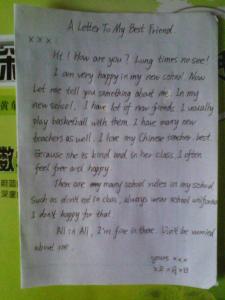 A Letter To My Best Friend
x x x :
Hi ! How are you ? Lung times no see!
I am very happy in my new school. Now
Let me tell you something about me. In my
new school. I have lot of new friends. I usually
play basketball with them. I have many new
teachers as well. I love my Chinese teacher best.
Because she is kind and in her class, I often
feel free and happy.
There are many school rules in my school
Such as don't eat in class, always wear school uniforms
I don't happy for that.
All in All, I'm fine in there. Don't be worried
about me.
yours xxx
x月x日
深
黄
数